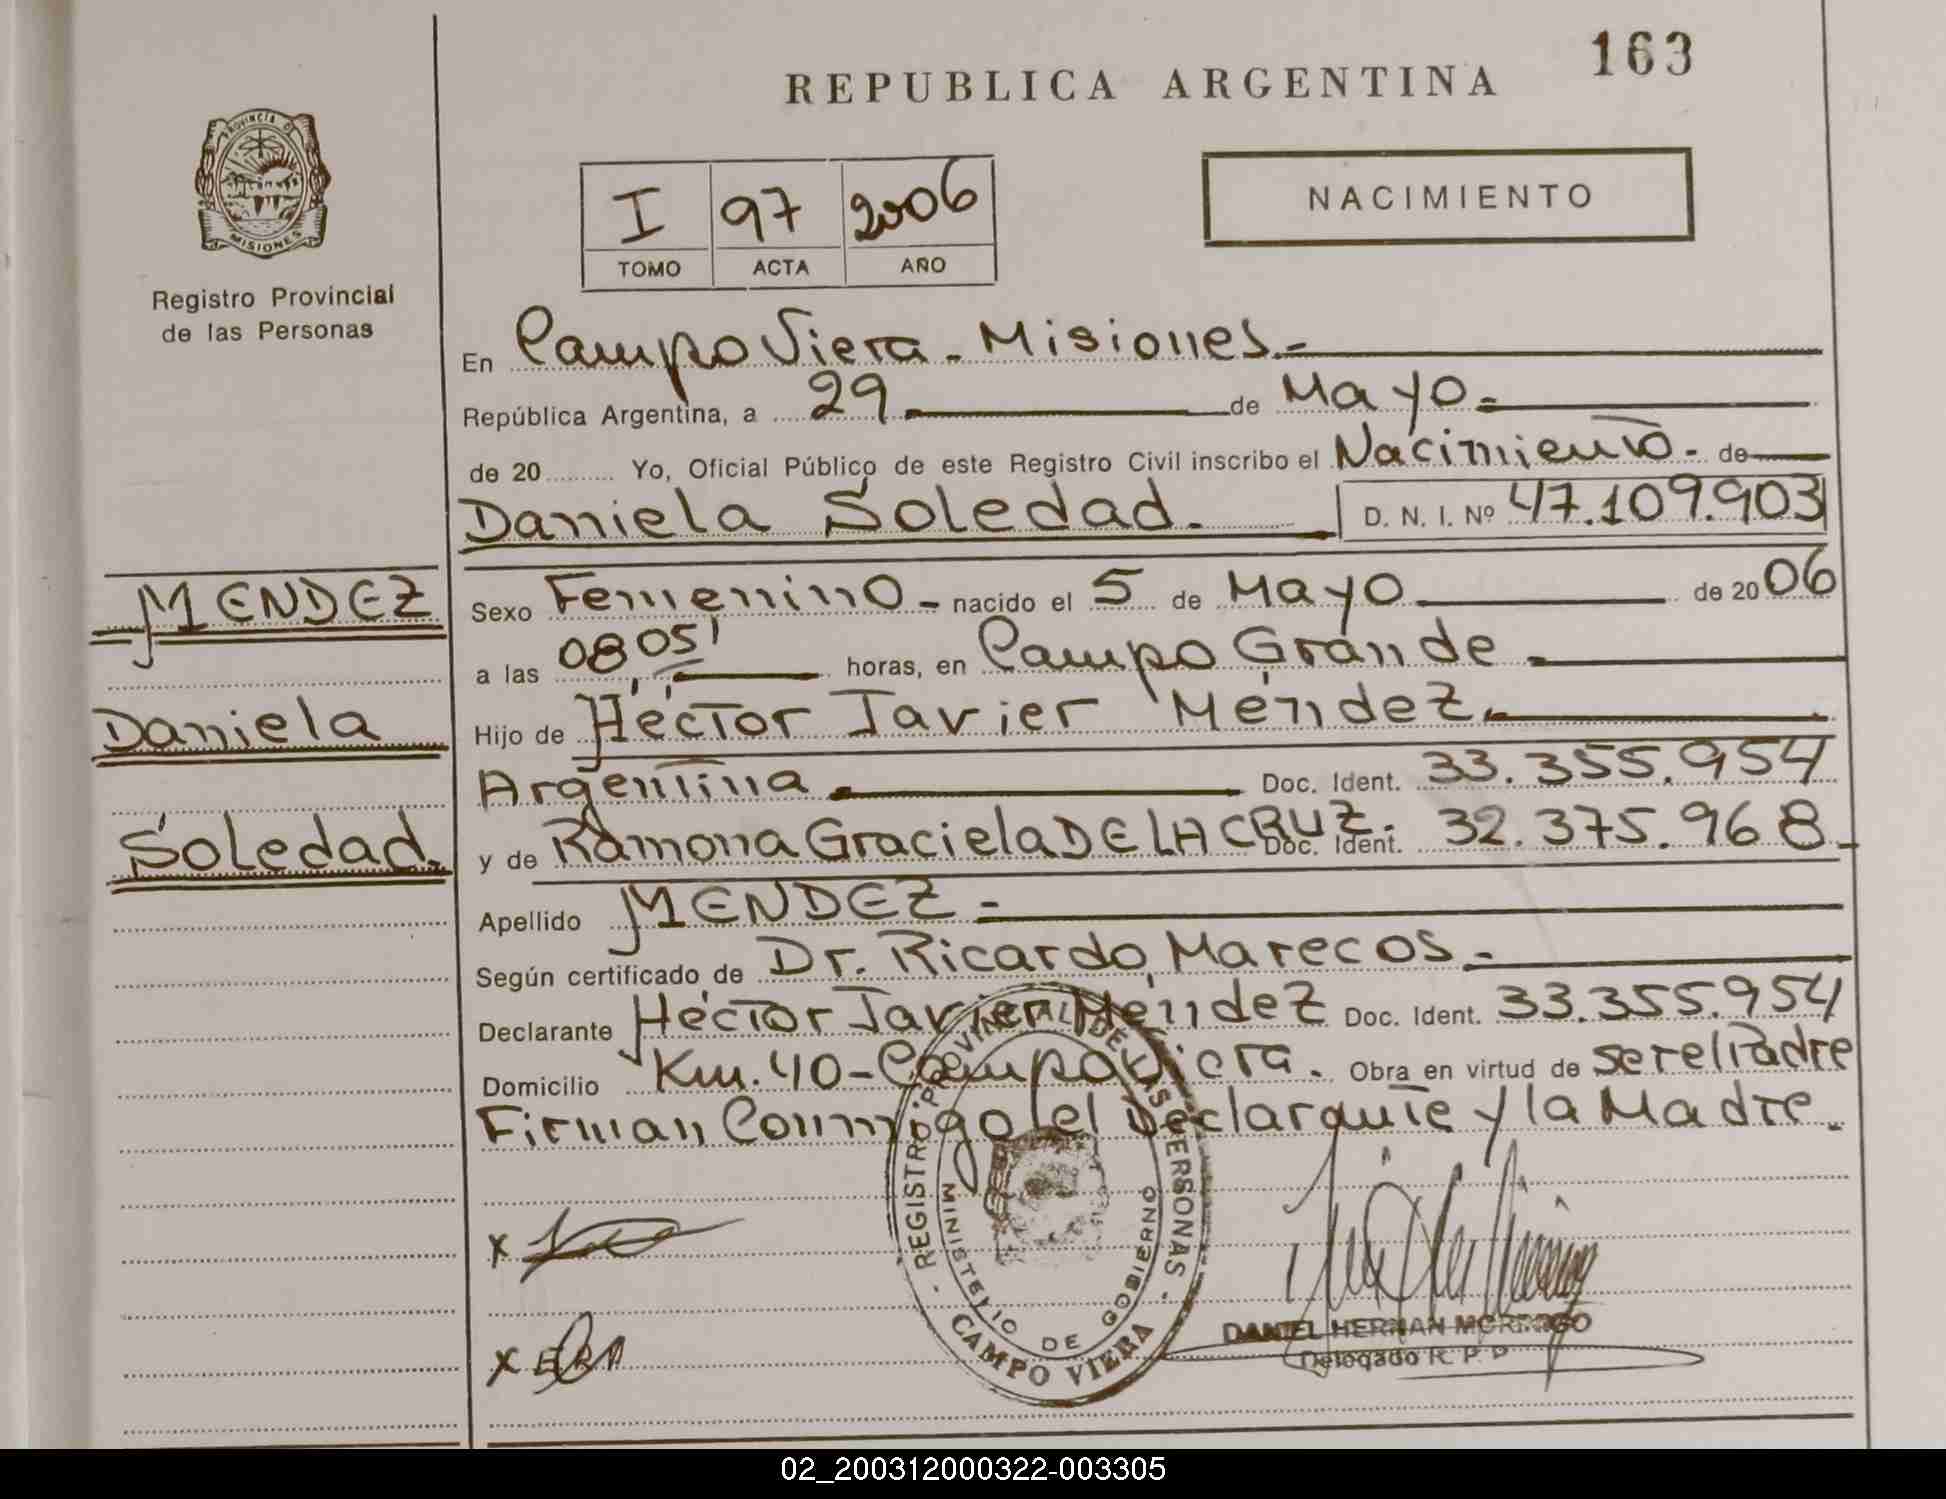 163
REPUBLICA ARGENTINA
PROVINCIA DE
MISIONES
Registro Provincial
de las Personas
I 97 2006
TOMO ACTA AÑO
NACIMIENTO
En Campo Viera - Misiones.-
República Argentina, a 29 de Mayo.-
de 20 Yo, Oficial Público de este Registro Civil inscribo el Nacimiento. de
Daniela Soledad. D. N. I. Nº 47.109.903
MENDEZ
Daniela
Soledad.
Sexo Femenino - nacido el 5 de Mayo de 2006
a las 08,05' horas, en Campo Grande -
Hijo de Héctor Javier Méndez.
Argentina Doc. Ident. 33.355.954
y de Ramona Graciela DE LA CRUZ. Doc. Ident. 32.375.968.
Apellido MENDEZ -
Según certificado de Dr. Ricardo Marecos -
Declarante Héctor Javier Méndez Doc. Ident. 33.355.954
Domicilio Km. 40 - Campo Viera. Obra en virtud de ser el Padre
Firman Conmigo el Declarante y la Madre.
REGISTRO PROVINCIAL DE LAS PERSONAS
MINISTERIO DE GOBIERNO
- CAMPO VIERA -
X
X
DANIEL HERNAN
Delegado R. P. P.
02_200312000322-003305